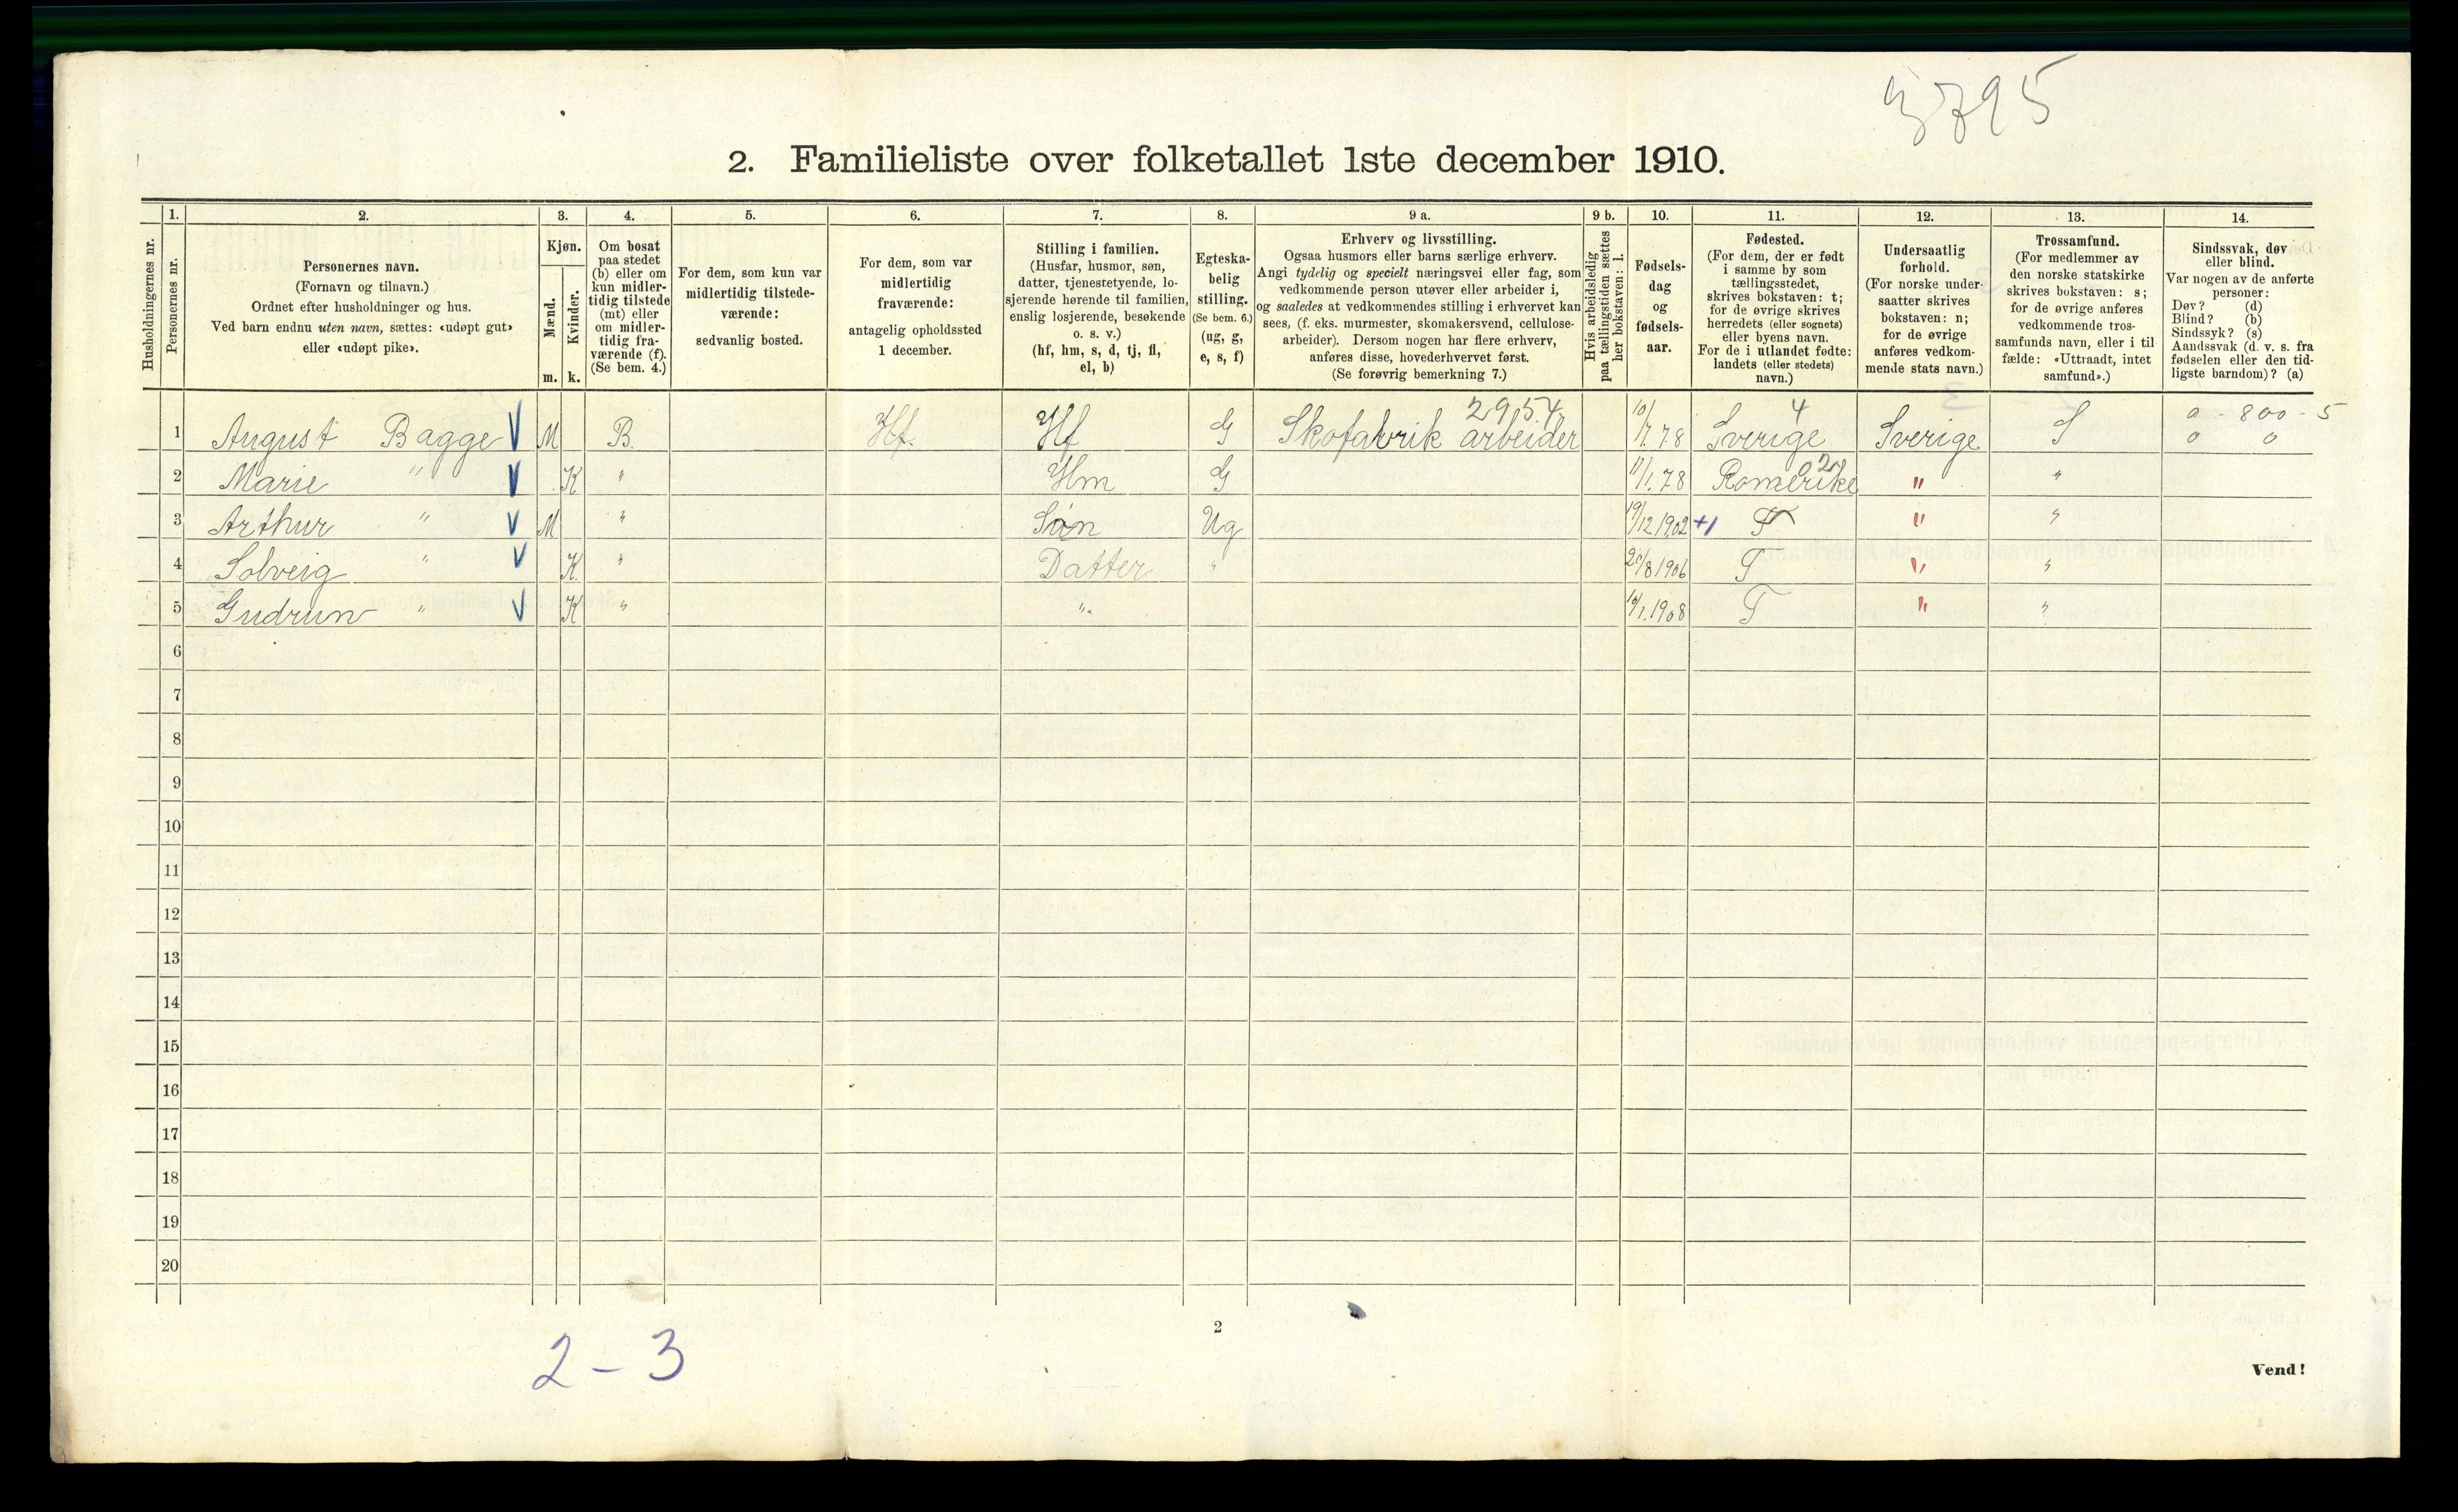 5795
2. Familieliste over folketallet 1ste december 1910.
1. 2. 3. 4. 5. 6. 7. 8. 9 a. 9 b. 10. 11. 12. 13. 14.
Husholdningernes nr.
Personernes nr.
Personernes navn.
(Fornavn og tilnavn.)
Ordnet efter husholdninger og hus.
Ved barn endnu uten navn, sættes: «udøpt gut»
eller «udøpt pike».
Kjøn.
Mænd.
Kvinder.
m. k.
Om bosat
paa stedet
(b) eller om
kun midler-
tidig tilstede
(mt) eller
om midler-
tidig fra-
værende (f).
(Se bem. 4.)
For dem, som kun var
midlertidig tilstede-
værende:
sedvanlig bosted.
For dem, som var
midlertidig
fraværende:
antagelig opholdssted
1 december.
Stilling i familien.
(Husfar, husmor, søn,
datter, tjenestetyende, lo-
sjerende hørende til familien,
enslig losjerende, besøkende
o. s. v.)
(hf, hm, s, d, tj, fl,
el, b)
Egteska-
belig
stilling.
(Se bem. 6.)
(ug, g,
e, s, f)
Erhverv og livsstilling.
Ogsaa husmors eller barns særlige erhverv.
Angi tydelig og specielt næringsvei eller fag, som
vedkommende person utøver eller arbeider i,
og saaledes at vedkommendes stilling i erhvervet kan
sees, (f. eks. murmester, skomakersvend, cellulose-
arbeider). Dersom nogen har flere erhverv,
anføres disse, hovederhvervet først.
(Se forøvrig bemerkning 7.)
Hvis arbeidsledig
paa tællingstiden sættes
her bokstaven: l.
Fødsels-
dag
og
fødsels-
aar.
Fødested.
(For dem, der er født
i samme by som
tællingsstedet,
skrives bokstaven: t;
for de øvrige skrives
herredets (eller sognets)
eller byens navn.
For de i utlandet fødte:
landets (eller stedets)
navn.)
Undersaatlig
forhold.
(For norske under-
saatter skrives
bokstaven: n;
for de øvrige
anføres vedkom-
mende stats navn.)
Trossamfund.
(For medlemmer av
den norske statskirke
skrives bokstaven: s;
for de øvrige anføres
vedkommende tros-
samfunds navn, eller i til-
fælde: «Uttraadt, intet
samfund».)
Sindssvak, døv
eller blind.
Var nogen av de anførte
personer:
Døv? (d)
Blind? (b)
Sindssyk? (s)
Aandssvak (d. v. s. fra
fødselen eller den tid-
ligste barndom)? (a)
2954 4 0 - 800 - 5
1 August Bagge V M B. Hf. Hf G Skofabrik arbeider 10/7.78 Sverige Sverige S 0 0
02
2 Marie " V K " Hm G 11/1.78 Romerike " "
3 Arthur " V M " Søn Ug 19/12 1902 +1 T " "
4 Solveig " V K. " Datter " 20/8 1906 T " "
5 Gudrun " V K " " 10/1.1908 T " "
6
7
8
9
10
11
12
13
14
15
16
17
18
19
20
2
2 - 3
Vend!